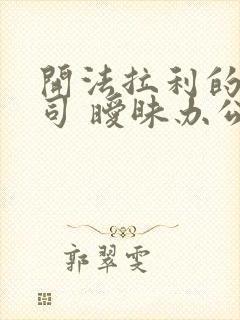 開法拉利的
司 曖昧办公
郭翠雯